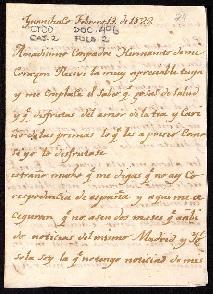 Febrero 13, de 1822
39
CTDO DOC. 406
CAJ. 2 FOLO. 2
Amadisimo Compadre Hermanito de mi
Corazon Recivi la muy apreciable tuya
y me Complace el Saber q.e gosas de Salud
y q.e disfrutas del amor de la tia y Cari
ño de las primas lo q.e
yo lo disfrutare
estraño mucho q.e me digas q.e no ay Co
respondencia de españa y aqui me a
seguran q.e no asen dos meses q.e
de noticias del mismo Madrid y
so la soy la q.e no tengo noticias de mis